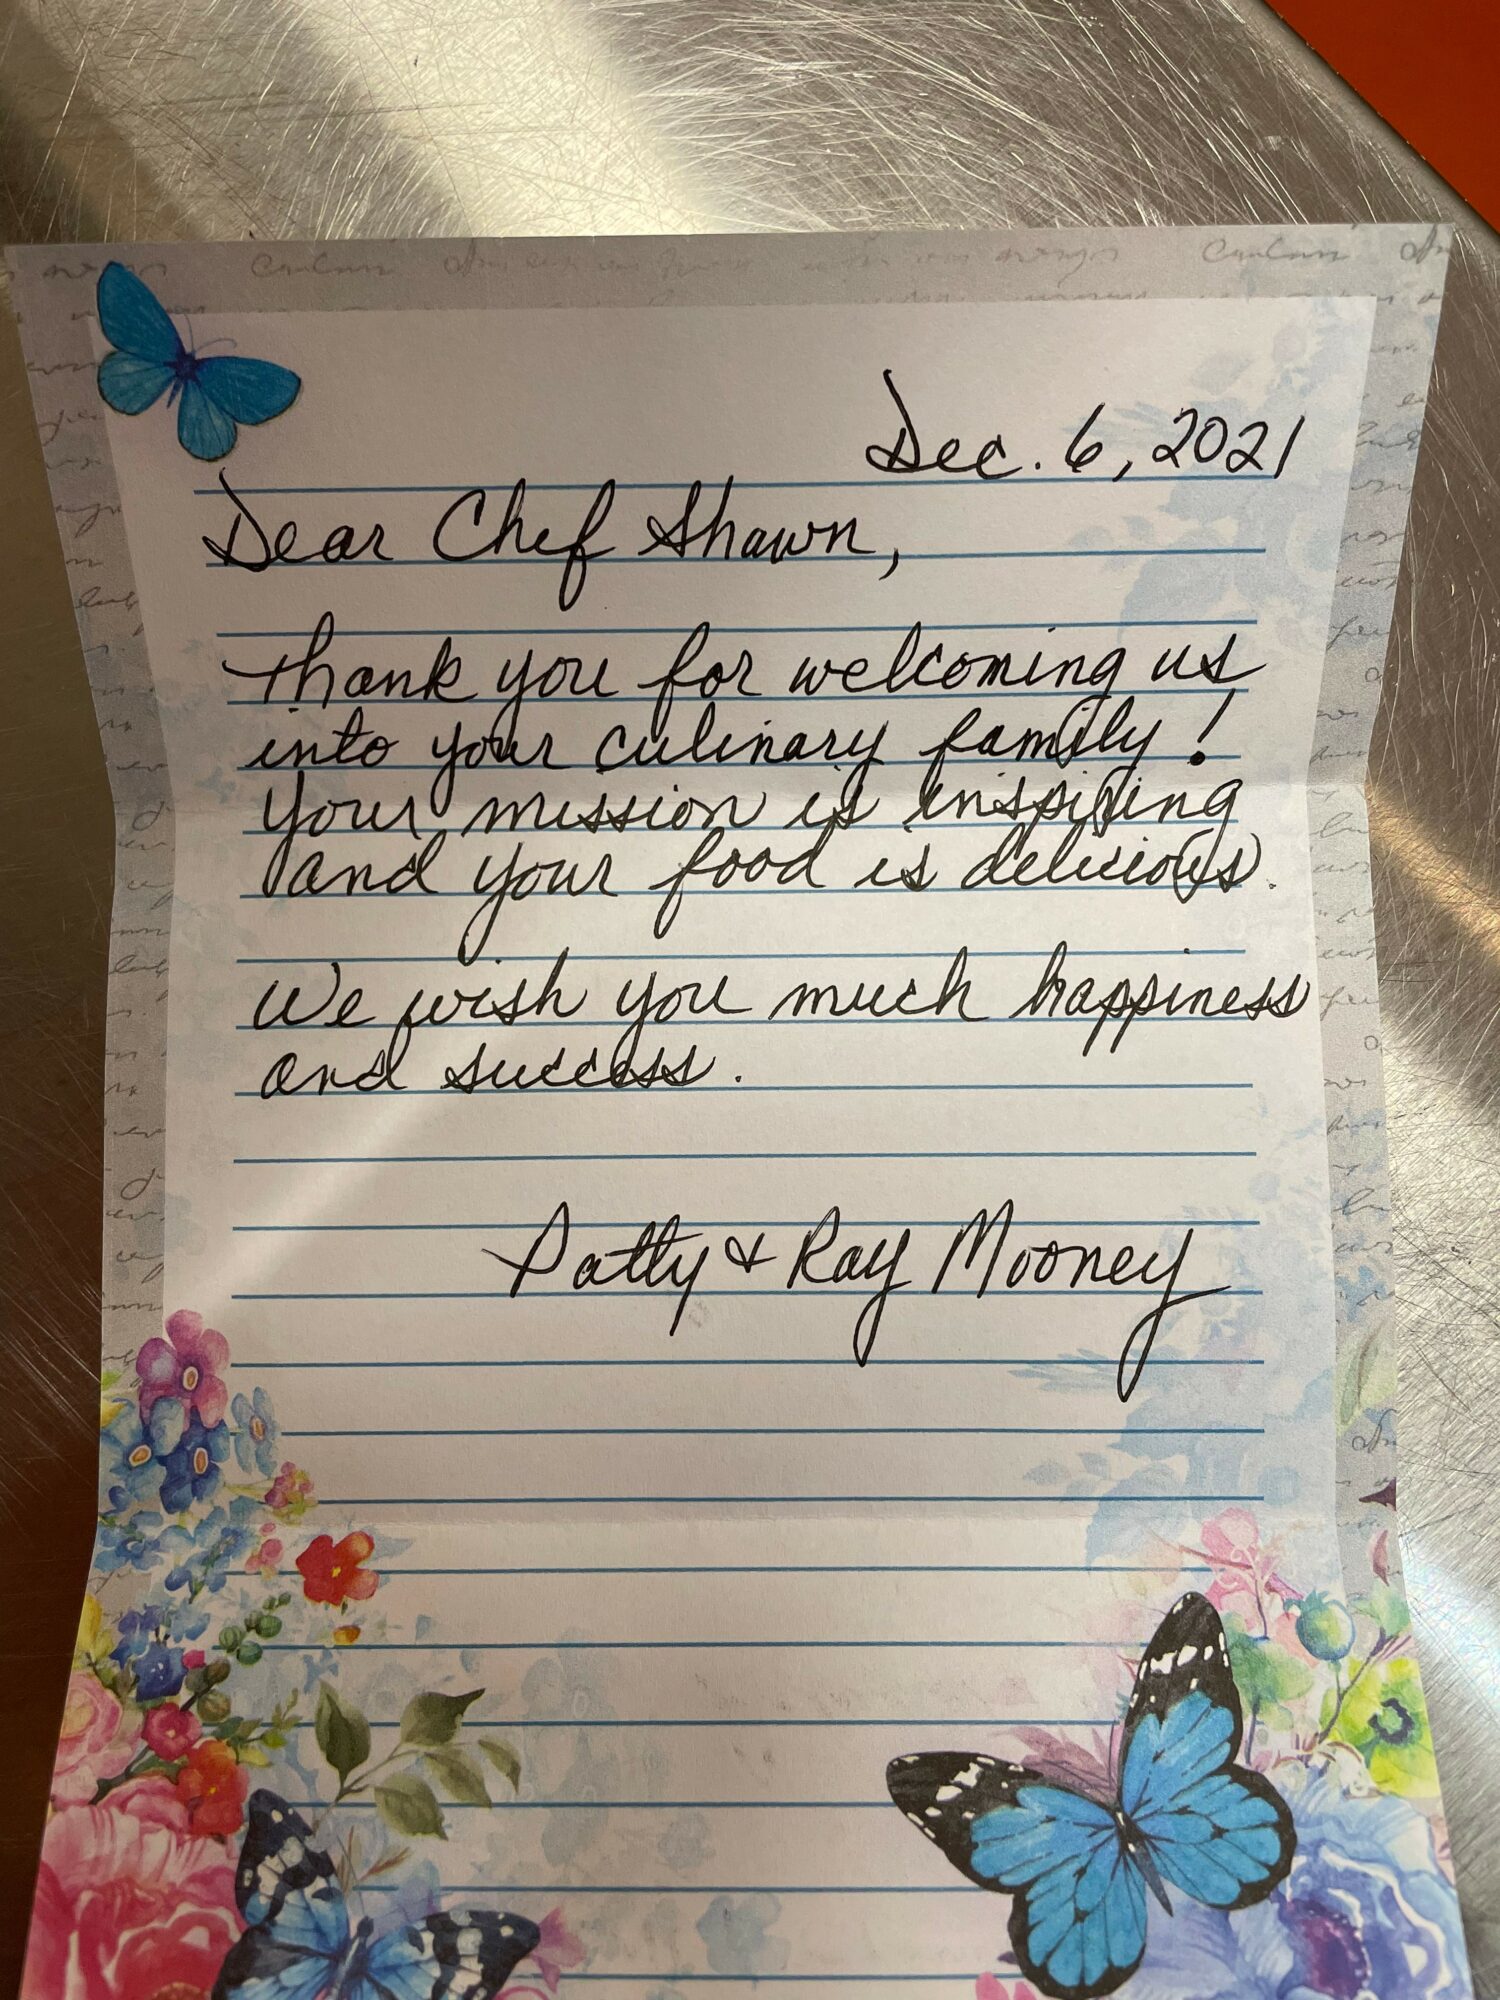 Dec. 6, 2021
Dear Chef Shawn,
Thank you for welcoming us
into your culinary family!
Your mission is inspiring
and your food is delicious.
We wish you much happiness
and success.
Patty & Ray Mooney